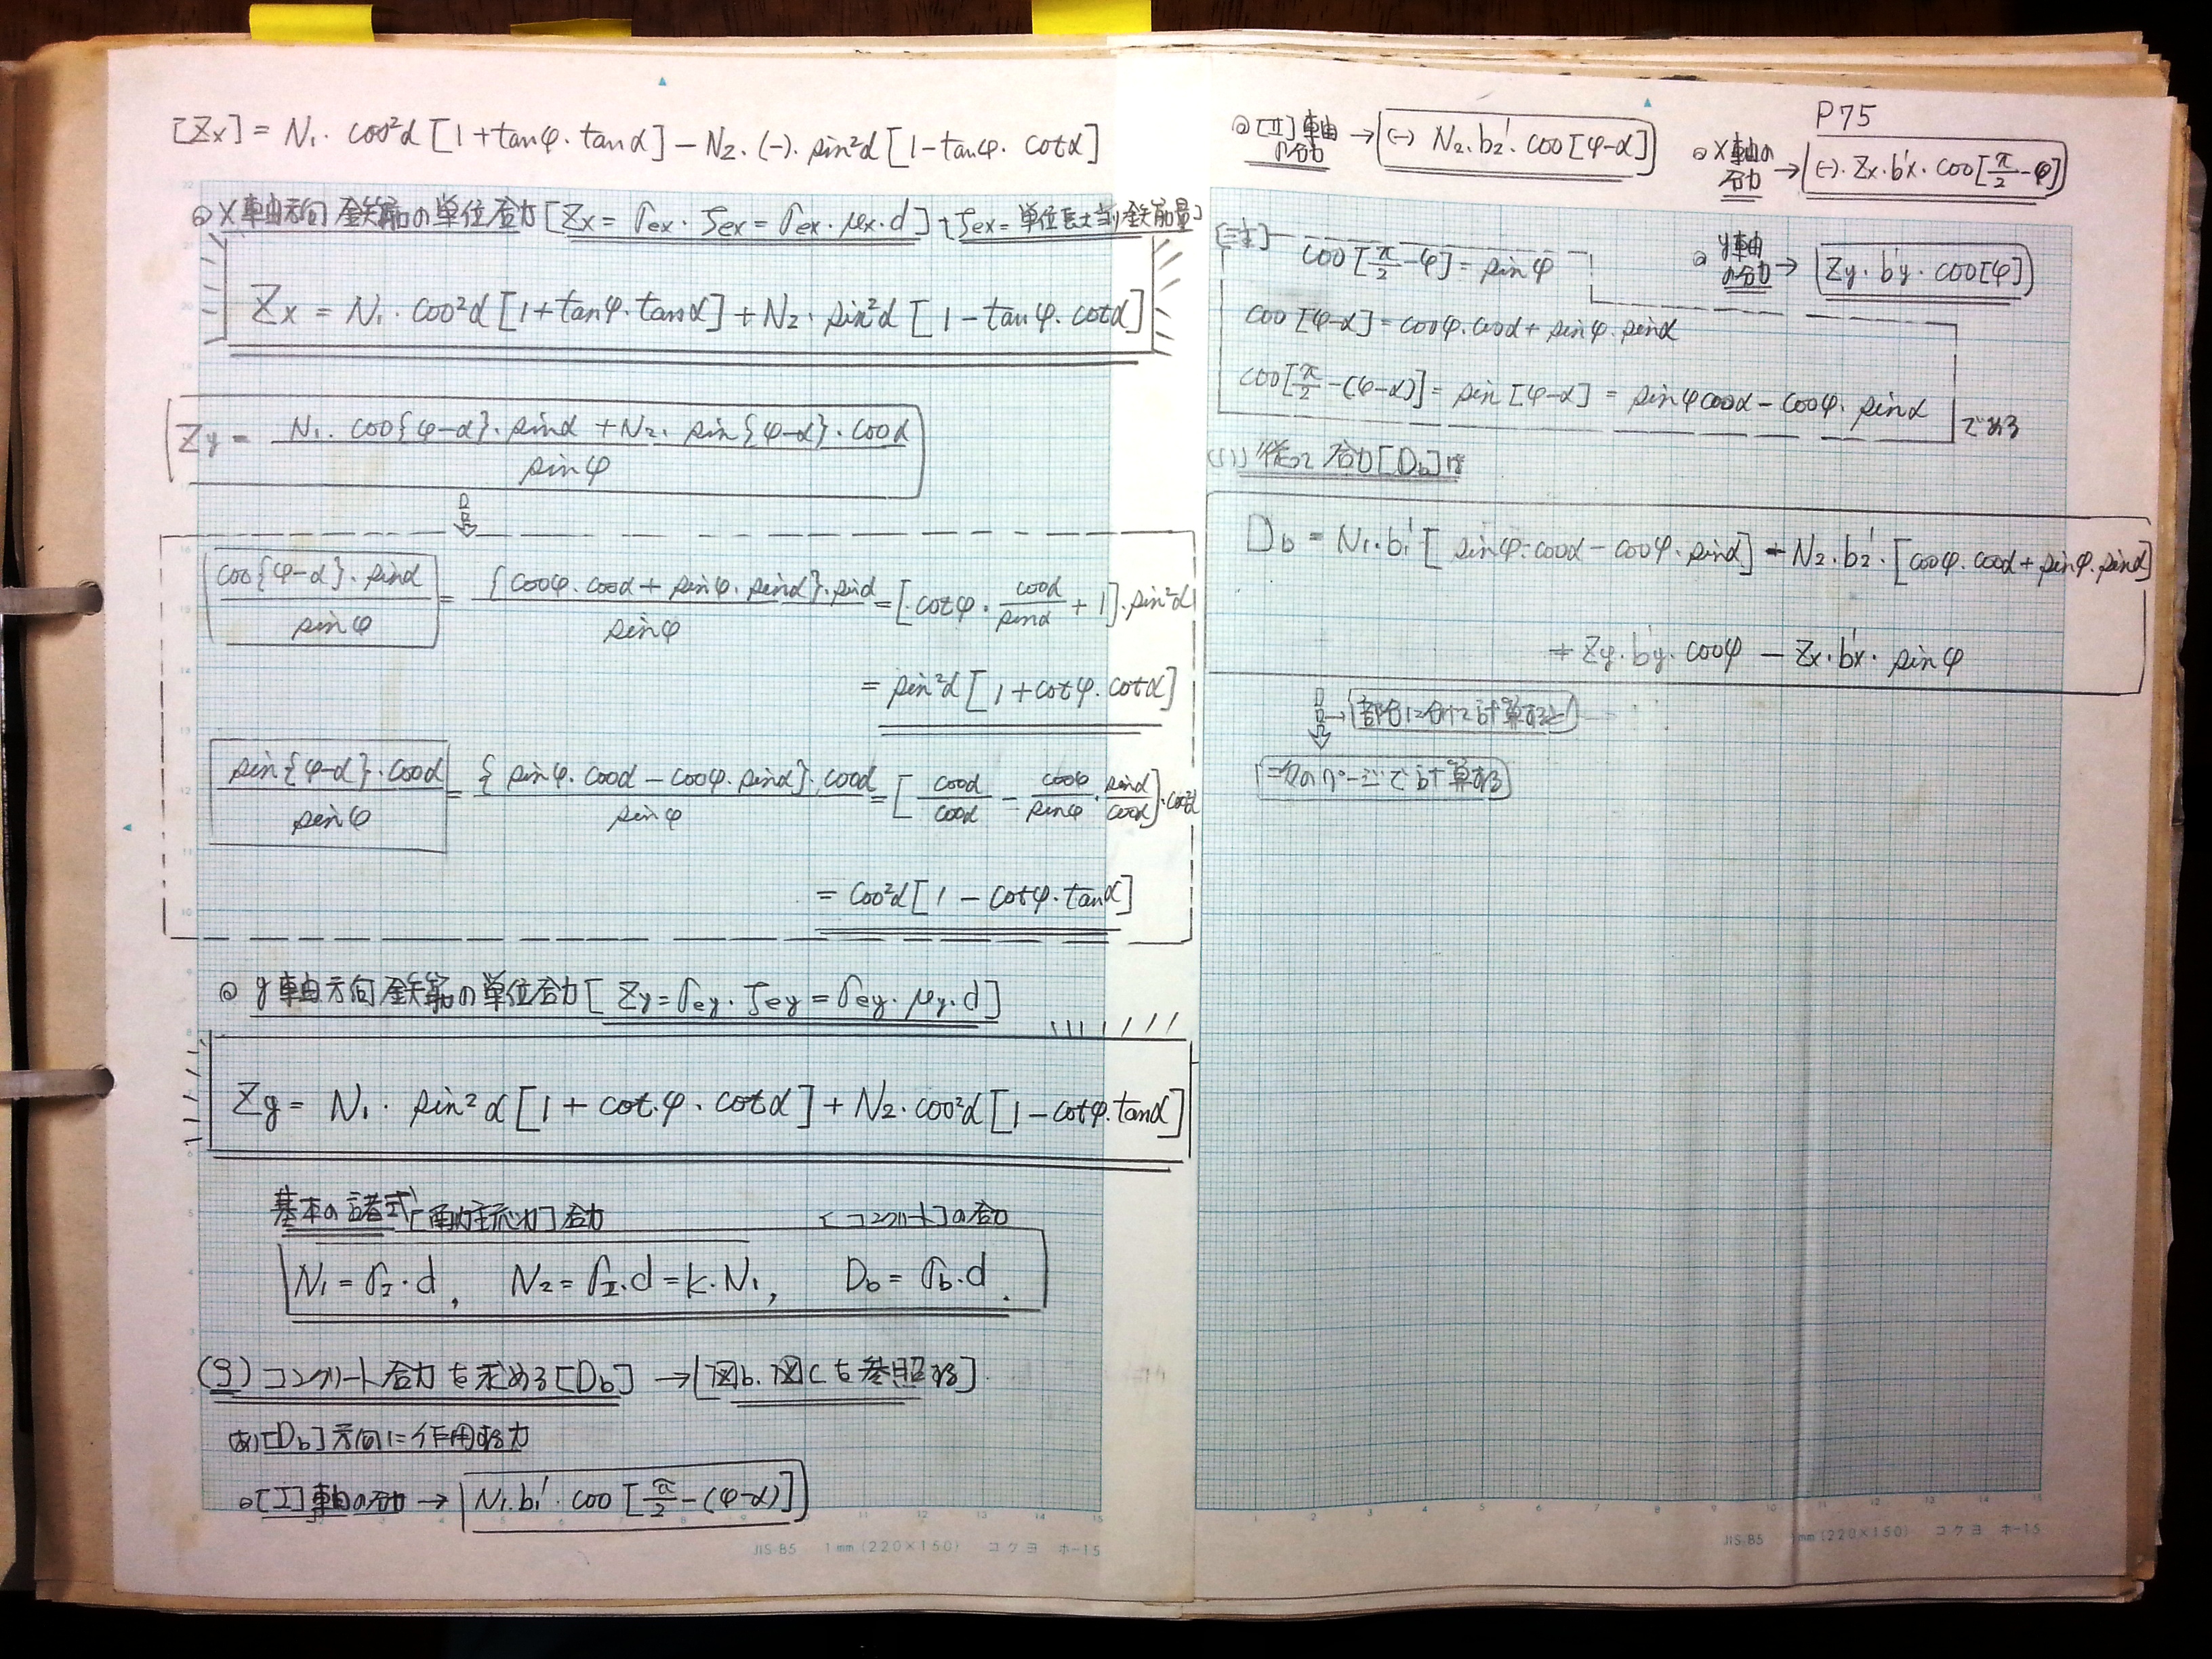 [Zx] = N₁· cos²α [1+tanφ·tanα] − N₂·(−)·sin²α [1−tanφ· cotα]
◎ X軸方向 鉄筋の単位合力 [Zx = σex · ζex = σex · μx · d] [ζex = 単位長さ当り鉄筋量]
Zx = N₁ · cos²α [1+tanφ·tanα] + N₂ · sin²α [1 − tanφ·cotα]
Zy = N₁ · cos{φ−α}· sinα + N₂· sin{φ−α}· cosα / sinφ
cos{φ−α}· sinα / sinφ = {cosφ·cosα + sinφ· sinα}· sinα / sinφ = [cotφ · cosα/sinα + 1]· sin²α
= sin²α [1+cotφ·cotα]
sin{φ−α}·cosα / sinφ = {sinφ·cosα − cosφ·sinα}·cosα / sinφ = [cosα/cosα − cosφ/sinφ · sinα/cosα]·cos²α
= cos²α [1 − cotφ·tanα]
◎ y軸方向鉄筋の単位合力 [Zy = σey · ζey = σey · μy · d]
Zy = N₁ · sin²α [1 + cot·φ · cotα] + N₂ · cos²α [1 − cotφ·tanα]
基本の諸式 合力 [コンクリート]の合力
N₁ = σI · d , N₂ = σII · d = k · N₁ , Db = σb · d .
(9) コンクリート合力を求める [Db] → [図b. 図cを参照する]
(あ) [Db]方向に作用する力
◎ [I]軸の分力 → N₁·b₁' · cos [π/2 − (φ−α)]
P75
◎ [II]軸の分力 → (−) N₂·b₂' · cos [φ−α]
◎ X軸の分力 → (−)· Zx·b'x · cos [π/2 − φ]
[注] cos [π/2 − φ] = sinφ
◎ y軸の分力 → Zy · b'y · cos [φ]
cos [φ−α] = cosφ·cosα + sinφ·sinα
cos [π/2 − (φ−α)] = sin [φ−α] = sinφ cosα − cosφ· sinα である
(い) 従って 合力 [Db] は
Db = N₁·b₁' [sinφ·cosα − cosφ·sinα] − N₂·b₂' · [cosφ·cosα + sinφ·sinα]
+ Zy·b'y· cosφ − Zx·b'x · sinφ
→ 部分に分けて計算すると
次のページで計算する
JIS B5 1mm (220×150) コクヨ ホ-15
JIS B5 1mm (220×150) コクヨ ホ-15